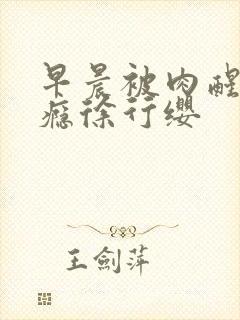 早晨被肉醒
瘾徐行缨
王劍萍